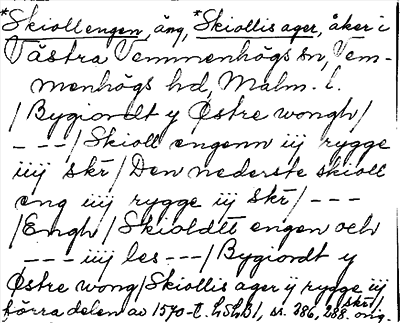 *Skiollengen, äng, *Skiollis ager, åker i
Västra Vemmenhögs sn, Vem-
menhögs hd, Malm. l.
/Bygiondt y Østre wongh/
---/Skioll engenn iij rygge
iiij skr̄/Den nederste skioll
eng iij rygge iij skr̄/---
/Engh/Skioldtt engen och
--- iiij les ---/Bygiondt y
Østre wong/Skiollis ager ij rygge iij
skr̄/
förra delen av 1570-t. LSLB1, ss. 286, 288. orig.